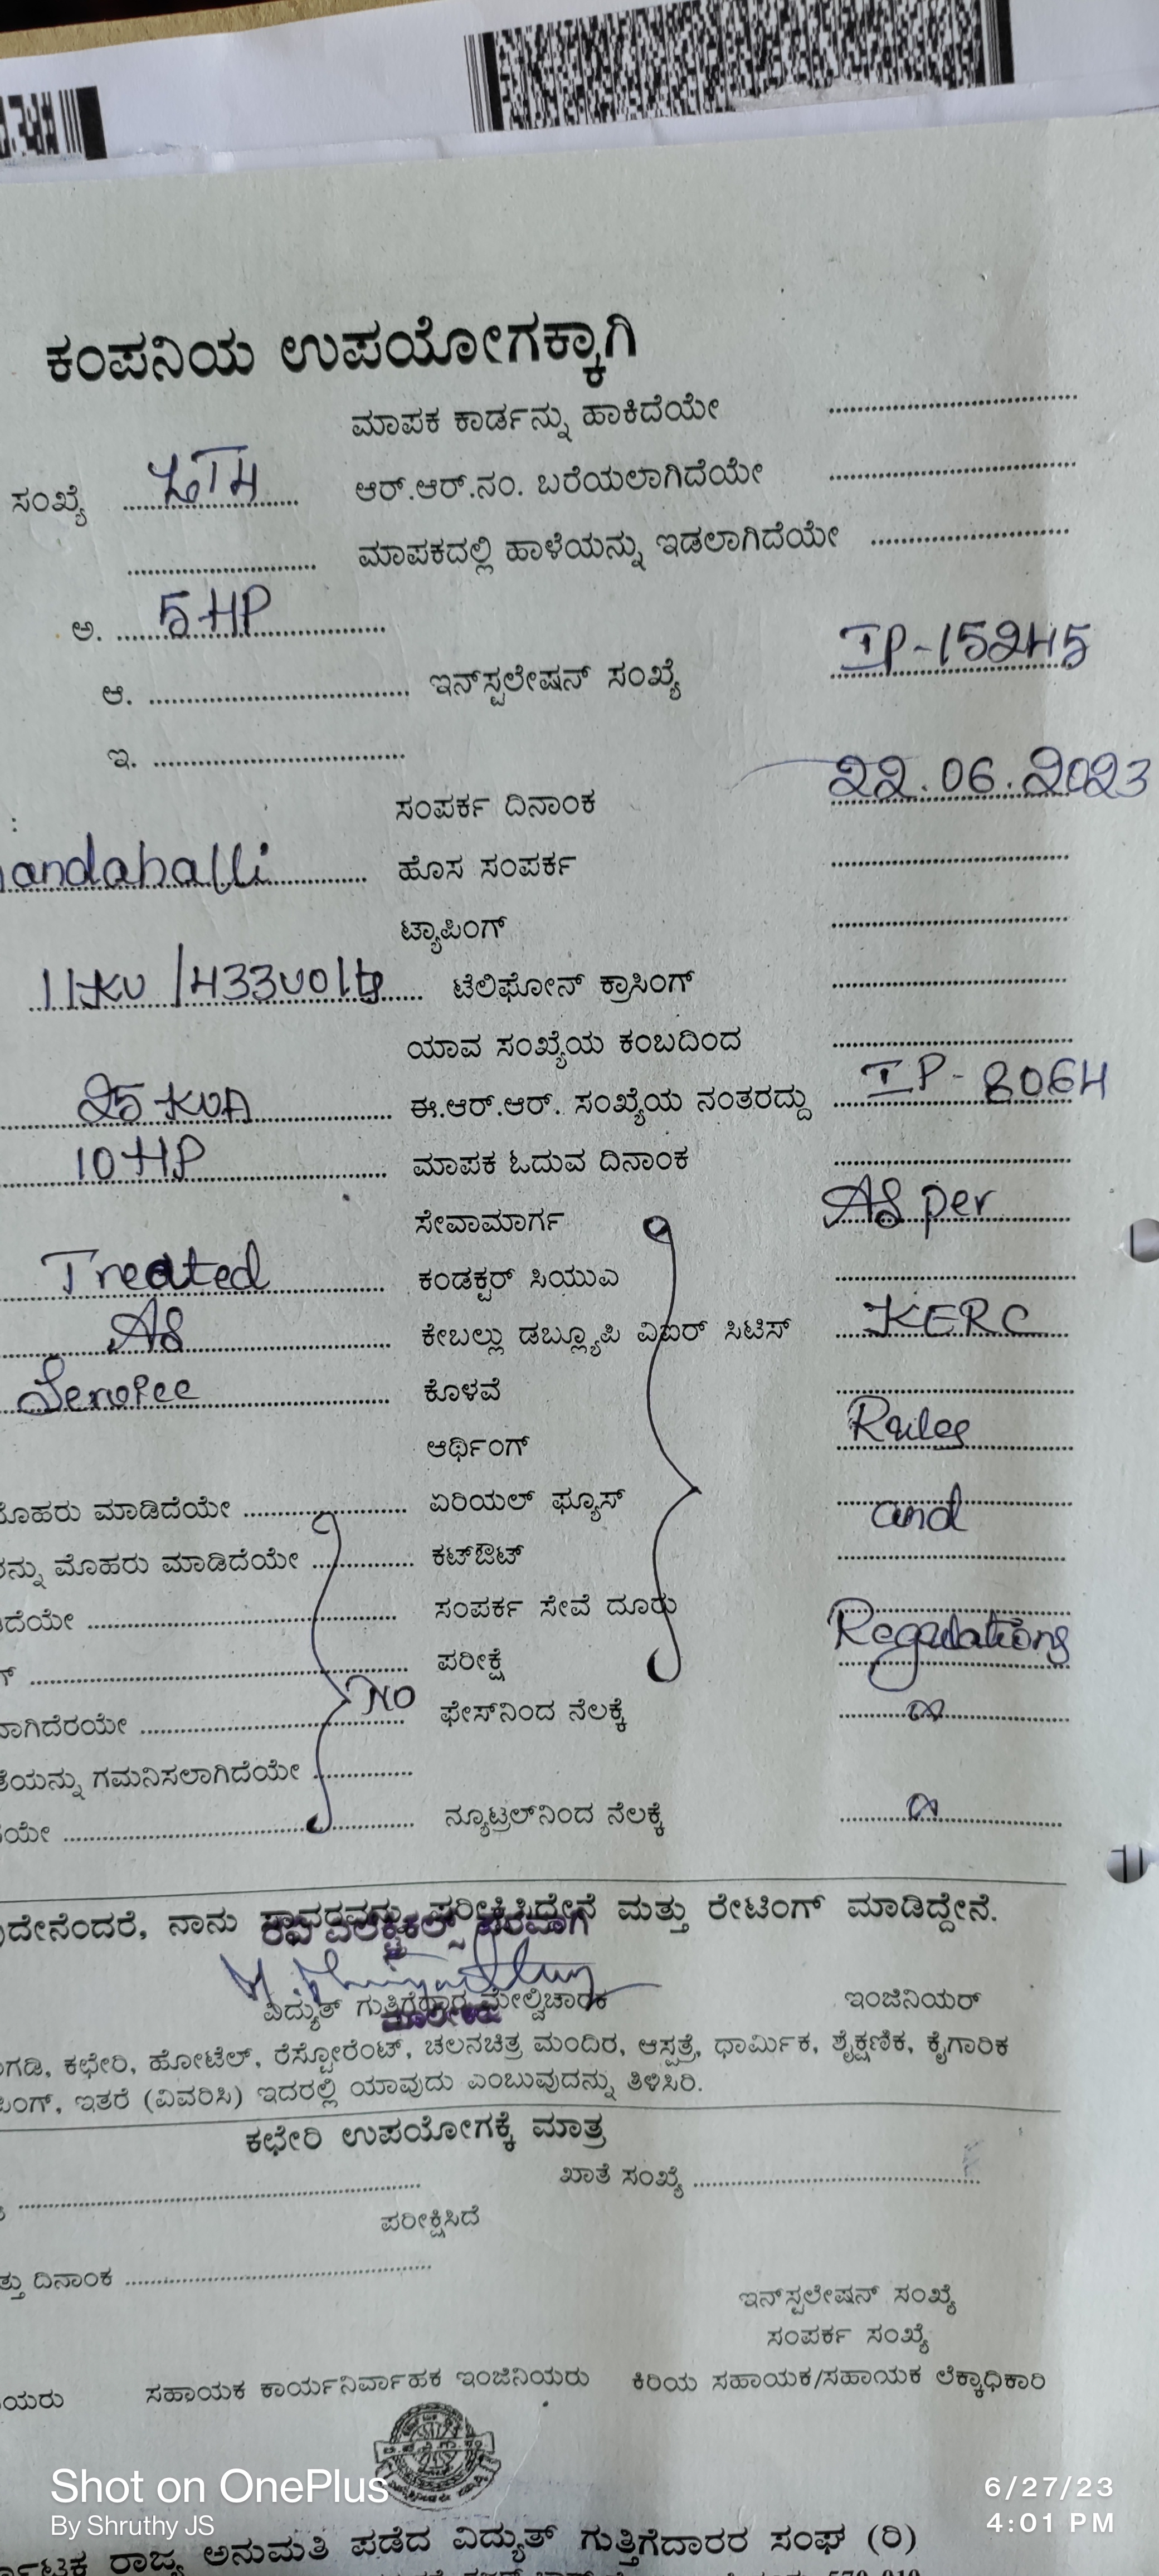 ಕಂಪನಿಯ ಉಪಯೋಗಕ್ಕಾಗಿ
ಮಾಪಕ ಕಾರ್ಡನ್ನು ಹಾಕಿದೆಯೇ
ಸಂಖ್ಯೆ LT4 ಆರ್.ಆರ್.ನಂ. ಬರೆಯಲಾಗಿದೆಯೇ
ಮಾಪಕದಲ್ಲಿ ಹಾಳೆಯನ್ನು ಇಡಲಾಗಿದೆಯೇ
ಅ. 5 HP
ಆ. ಇನ್‌ಸ್ಟಲೇಷನ್ ಸಂಖ್ಯೆ IP-15245
ಇ.
ಸಂಪರ್ಕ ದಿನಾಂಕ 22.06.2023
andahalli ಹೊಸ ಸಂಪರ್ಕ
ಟ್ಯಾಪಿಂಗ್
11KV /433volts ಟೆಲಿಫೋನ್ ಕ್ರಾಸಿಂಗ್
ಯಾವ ಸಂಖ್ಯೆಯ ಕಂಬದಿಂದ
25 KVA ಈ.ಆರ್.ಆರ್. ಸಂಖ್ಯೆಯ ನಂತರದ್ದು IP-8064
10 HP ಮಾಪಕ ಓದುವ ದಿನಾಂಕ
ಸೇವಾಮಾರ್ಗ As per
Treated ಕಂಡಕ್ಟರ್ ಸಿಯುಎ
As ಕೇಬಲ್ಲು ಡಬ್ಲ್ಯೂಪಿ ವಿಐರ್ ಸಿಟಿಸ್ KERC
Service ಕೊಳವೆ
ಆರ್ಥಿಂಗ್ Rules
ಮೊಹರು ಮಾಡಿದೆಯೇ ಏರಿಯಲ್ ಫ್ಯೂಸ್ and
ಮೊಹರು ಮಾಡಿದೆಯೇ ಕಟ್‌ಔಟ್
ಸಂಪರ್ಕ ಸೇವೆ ದೂರು
ಪರೀಕ್ಷೆ Regulations
NO ಫೇಸ್‌ನಿಂದ ನೆಲಕ್ಕೆ
ಗಮನಿಸಲಾಗಿದೆಯೇ
ನ್ಯೂಟ್ರಲ್‌ನಿಂದ ನೆಲಕ್ಕೆ
ನಾನು ಸ್ಥಾವರವನ್ನು ಪರೀಕ್ಷಿಸಿದ್ದೇನೆ ಮತ್ತು ರೇಟಿಂಗ್ ಮಾಡಿದ್ದೇನೆ.
ರವಿ ಎಲೆಕ್ಟ್ರಿಕಲ್ಸ್ ಪರವಾಗಿ
ವಿದ್ಯುತ್ ಗುತ್ತಿಗೆದಾರ ಮೇಲ್ವಿಚಾರಕ ಇಂಜಿನಿಯರ್
ಕಛೇರಿ, ಹೋಟೆಲ್, ರೆಸ್ಟೋರೆಂಟ್, ಚಲನಚಿತ್ರ ಮಂದಿರ, ಆಸ್ಪತ್ರೆ, ಧಾರ್ಮಿಕ, ಶೈಕ್ಷಣಿಕ, ಕೈಗಾರಿಕ
ಇತರೆ (ವಿವರಿಸಿ) ಇದರಲ್ಲಿ ಯಾವುದು ಎಂಬುವುದನ್ನು ತಿಳಿಸಿರಿ.
ಕಛೇರಿ ಉಪಯೋಗಕ್ಕೆ ಮಾತ್ರ
ಖಾತೆ ಸಂಖ್ಯೆ
ಪರೀಕ್ಷಿಸಿದೆ
ದಿನಾಂಕ
ಇನ್‌ಸ್ಟಲೇಷನ್ ಸಂಖ್ಯೆ
ಸಂಪರ್ಕ ಸಂಖ್ಯೆ
ಸಹಾಯಕ ಕಾರ್ಯನಿರ್ವಾಹಕ ಇಂಜಿನಿಯರು ಕಿರಿಯ ಸಹಾಯಕ/ಸಹಾಯಕ ಲೆಕ್ಕಾಧಿಕಾರಿ
Shot on OnePlus
By Shruthy JS
6/27/23
4:01 PM
ರಾಜ್ಯ ಅನುಮತಿ ಪಡೆದ ವಿದ್ಯುತ್ ಗುತ್ತಿಗೆದಾರರ ಸಂಘ (ರಿ)